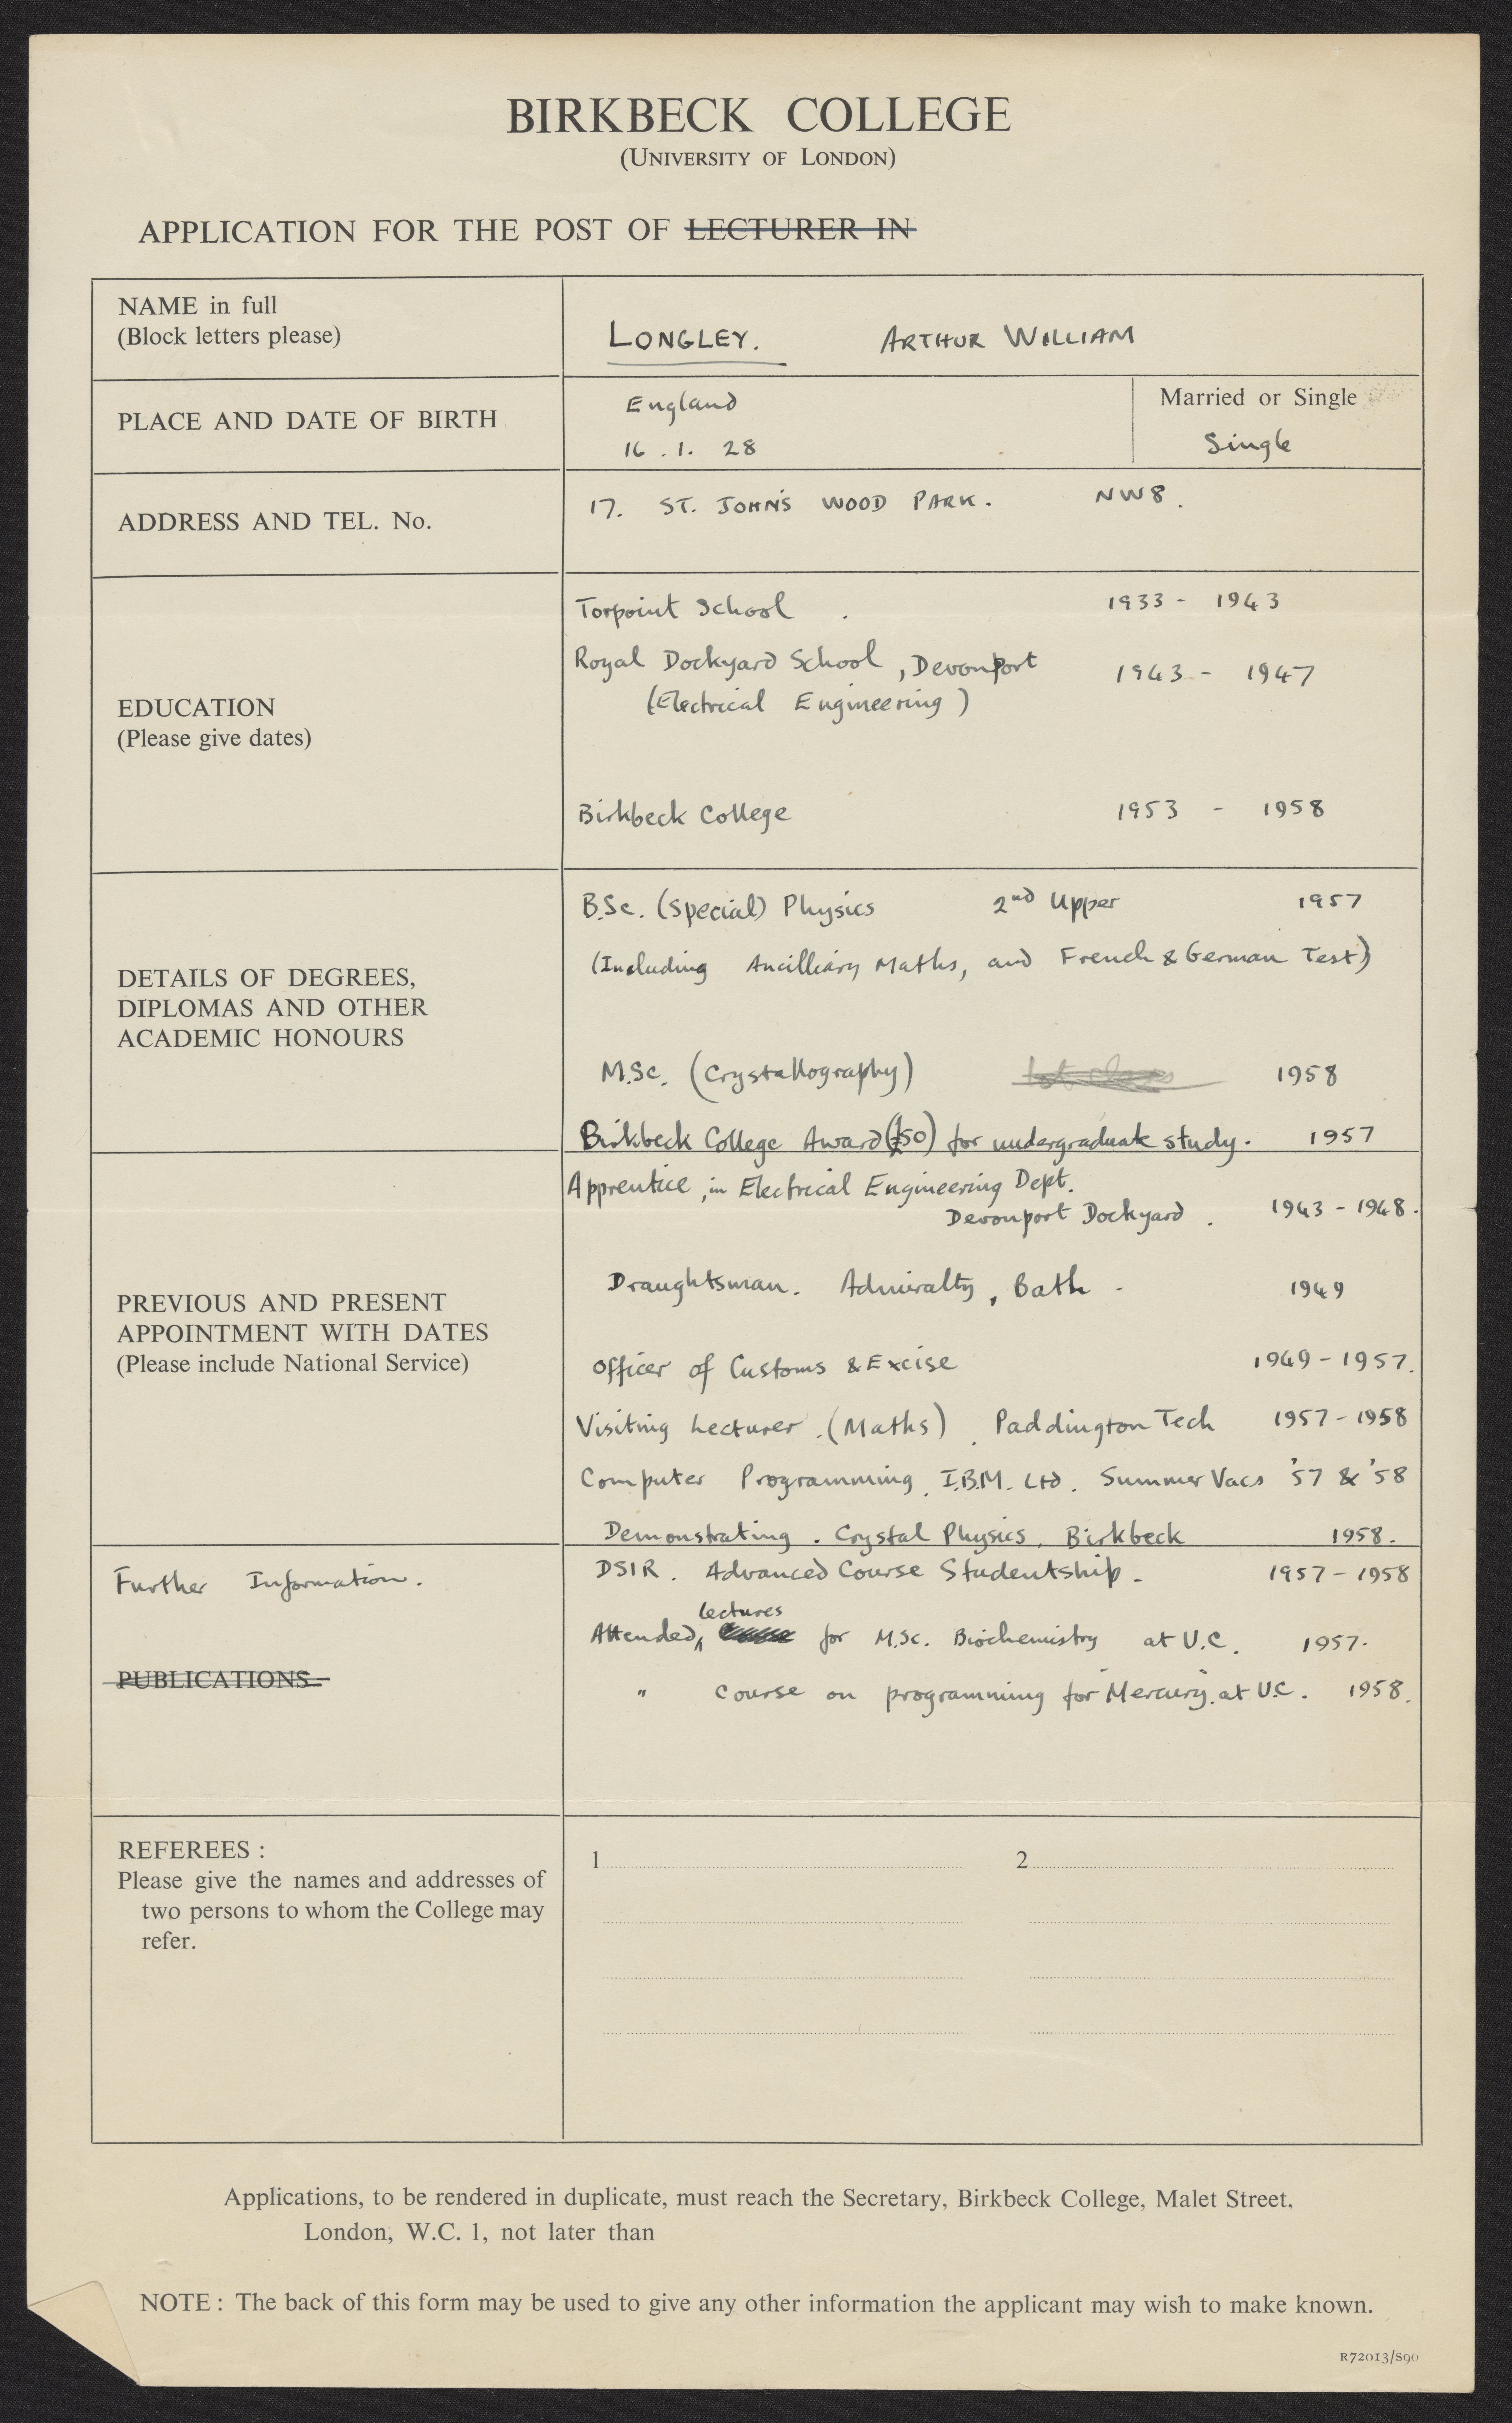 BIRKBECK COLLEGE
(UNIVERSITY OF LONDON)
APPLICATION FOR THE POST OF LECTURER IN
NAME in full
(Block letters please)
LONGLEY. ARTHUR WILLIAM
PLACE AND DATE OF BIRTH
England
16.1.28
Married or Single
Single
ADDRESS AND TEL. No.
17. ST. JOHN'S WOOD PARK. NW8.
EDUCATION
(Please give dates)
Torpoint School. 1933 - 1943
Royal Dockyard School, Devonport 1943 - 1947
(Electrical Engineering)
Birkbeck College 1953 - 1958
DETAILS OF DEGREES,
DIPLOMAS AND OTHER
ACADEMIC HONOURS
B.Sc. (Special) Physics 2nd Upper 1957
(Including Ancilliary Maths, and French & German Test)
M.Sc. (Crystallography) 1958
Birkbeck College Award (£50) for undergraduate study. 1957
PREVIOUS AND PRESENT
APPOINTMENT WITH DATES
(Please include National Service)
Apprentice, in Electrical Engineering Dept.
Devonport Dockyard. 1943 - 1948.
Draughtsman. Admiralty, Bath. 1949
Officer of Customs & Excise 1949 - 1957.
Visiting Lecturer. (Maths). Paddington Tech 1957 - 1958
Computer Programming. I.B.M. Ltd. Summer Vacs '57 & '58
Demonstrating. Crystal Physics. Birkbeck 1958.
Further Information.
PUBLICATIONS
DSIR. Advanced Course Studentship. 1957 - 1958
lectures
Attended, for M.Sc. Biochemistry at U.C. 1957.
" Course on programming for "Mercury". at U.C. 1958.
REFEREES :
Please give the names and addresses of
two persons to whom the College may
refer.
1 2
Applications, to be rendered in duplicate, must reach the Secretary, Birkbeck College, Malet Street.
London, W.C. 1, not later than
NOTE : The back of this form may be used to give any other information the applicant may wish to make known.
R72013/S90